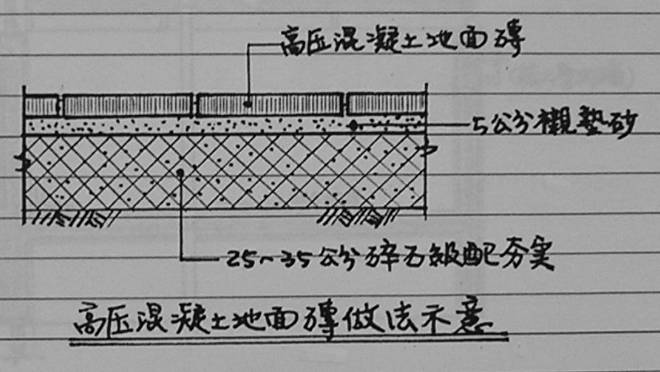 高压混凝土地面磚
5公分襯墊砂
25~35公分碎石級配夯实
高压混凝土地面磚做法示意